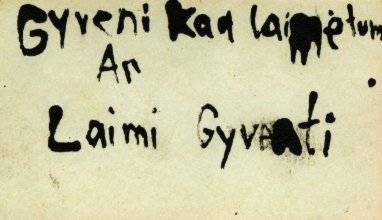 Gyveni Kad laimėtum
Ar
Laimi Gyventi